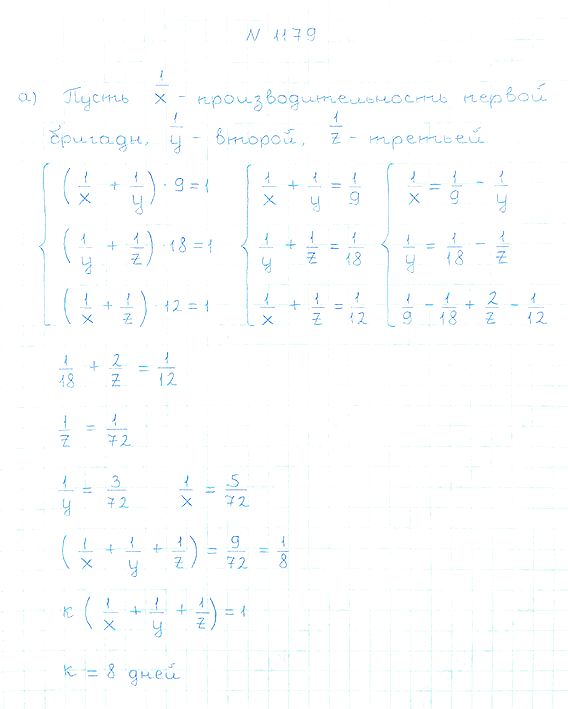 N 1179
а) Пусть 1/x - производительность первой
бригады, 1/y - второй, 1/z - третьей
(1/x + 1/y) · 9 = 1   1/x + 1/y = 1/9   1/x = 1/9 - 1/y
(1/y + 1/z) · 18 = 1   1/y + 1/z = 1/18   1/y = 1/18 - 1/z
(1/x + 1/z) · 12 = 1   1/x + 1/z = 1/12   1/9 - 1/18 + 2/z - 1/12
1/18 + 2/z = 1/12
1/z = 1/72
1/y = 3/72   1/x = 5/72
(1/x + 1/y + 1/z) = 9/72 = 1/8
к (1/x + 1/y + 1/z) = 1
к = 8 дней